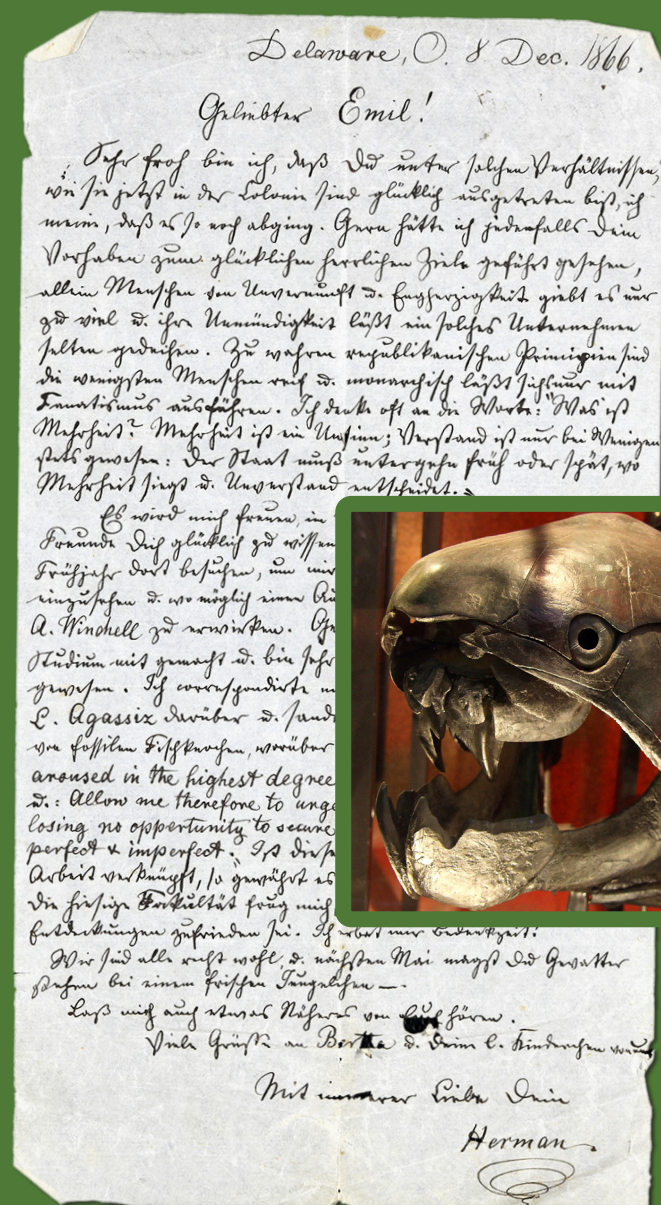 Delaware, O. 8 Dec. 1866.
Geliebter Emil!
Sehr froh bin ich, daß Du unter solchen Verhältnissen,
wie sie jetzt in der Colonie sind glücklich ausgetreten bist, ich
meine, daß es so noch abging. Gern hätte ich jedenfalls Dein
Vorhaben zum glücklichen herrlichen Ziele geführt gesehen,
allein Menschen von Unvernunft u. Engherzigkeit giebt es nur
zu viel u. ihre Unmündigkeit läßt ein solches Unternehmen
selten gedeihen. Zu wahren republikanischen Prinzipien sind
die wenigsten Menschen reif u. monarchisch läßt sichs nur mit
Fanatismus ausführen. Ich denke oft an die Worte: "Was ist
Mehrheit? Mehrheit ist ein Unsinn; Verstand ist nur bei Wenigen
stets gewesen: Der Staat muß untergehn früh oder spät, wo
Mehrheit siegt u. Unverstand entscheidet."
Es wird mich freuen, in
Freunde Dich glücklich zu wissen
Frühjahr dort besuchen, um mir
einzusehen u. wo möglich einen
A. Winchell zu erwirken.
Studium mit gemacht u. bin sehr
gewesen. Ich correspondirte
L. Agassiz darüber u. sand
von fossilen Fischknochen, worüber
aroused in the highest degree
u.: Allow me therefore to urge
losing no opportunity to secure
perfect & imperfect." Ist diese
Arbeit verknüpft, so gewährt es
Die hiesige Fakultät frug mich
Entdeckungen zufrieden sei. Ich erbat mir Bedenkzeit!
Wir sind alle recht wohl, u. nächsten Mai magst Du Gevatter
stehen bei einem frischen Jüngelchen —.
Laß mich auch etwas Näheres von Euch hören.
Viele Grüße an Bertha u. Deine l. Kinderchen
Mit immerer Liebe Dein
Herman.